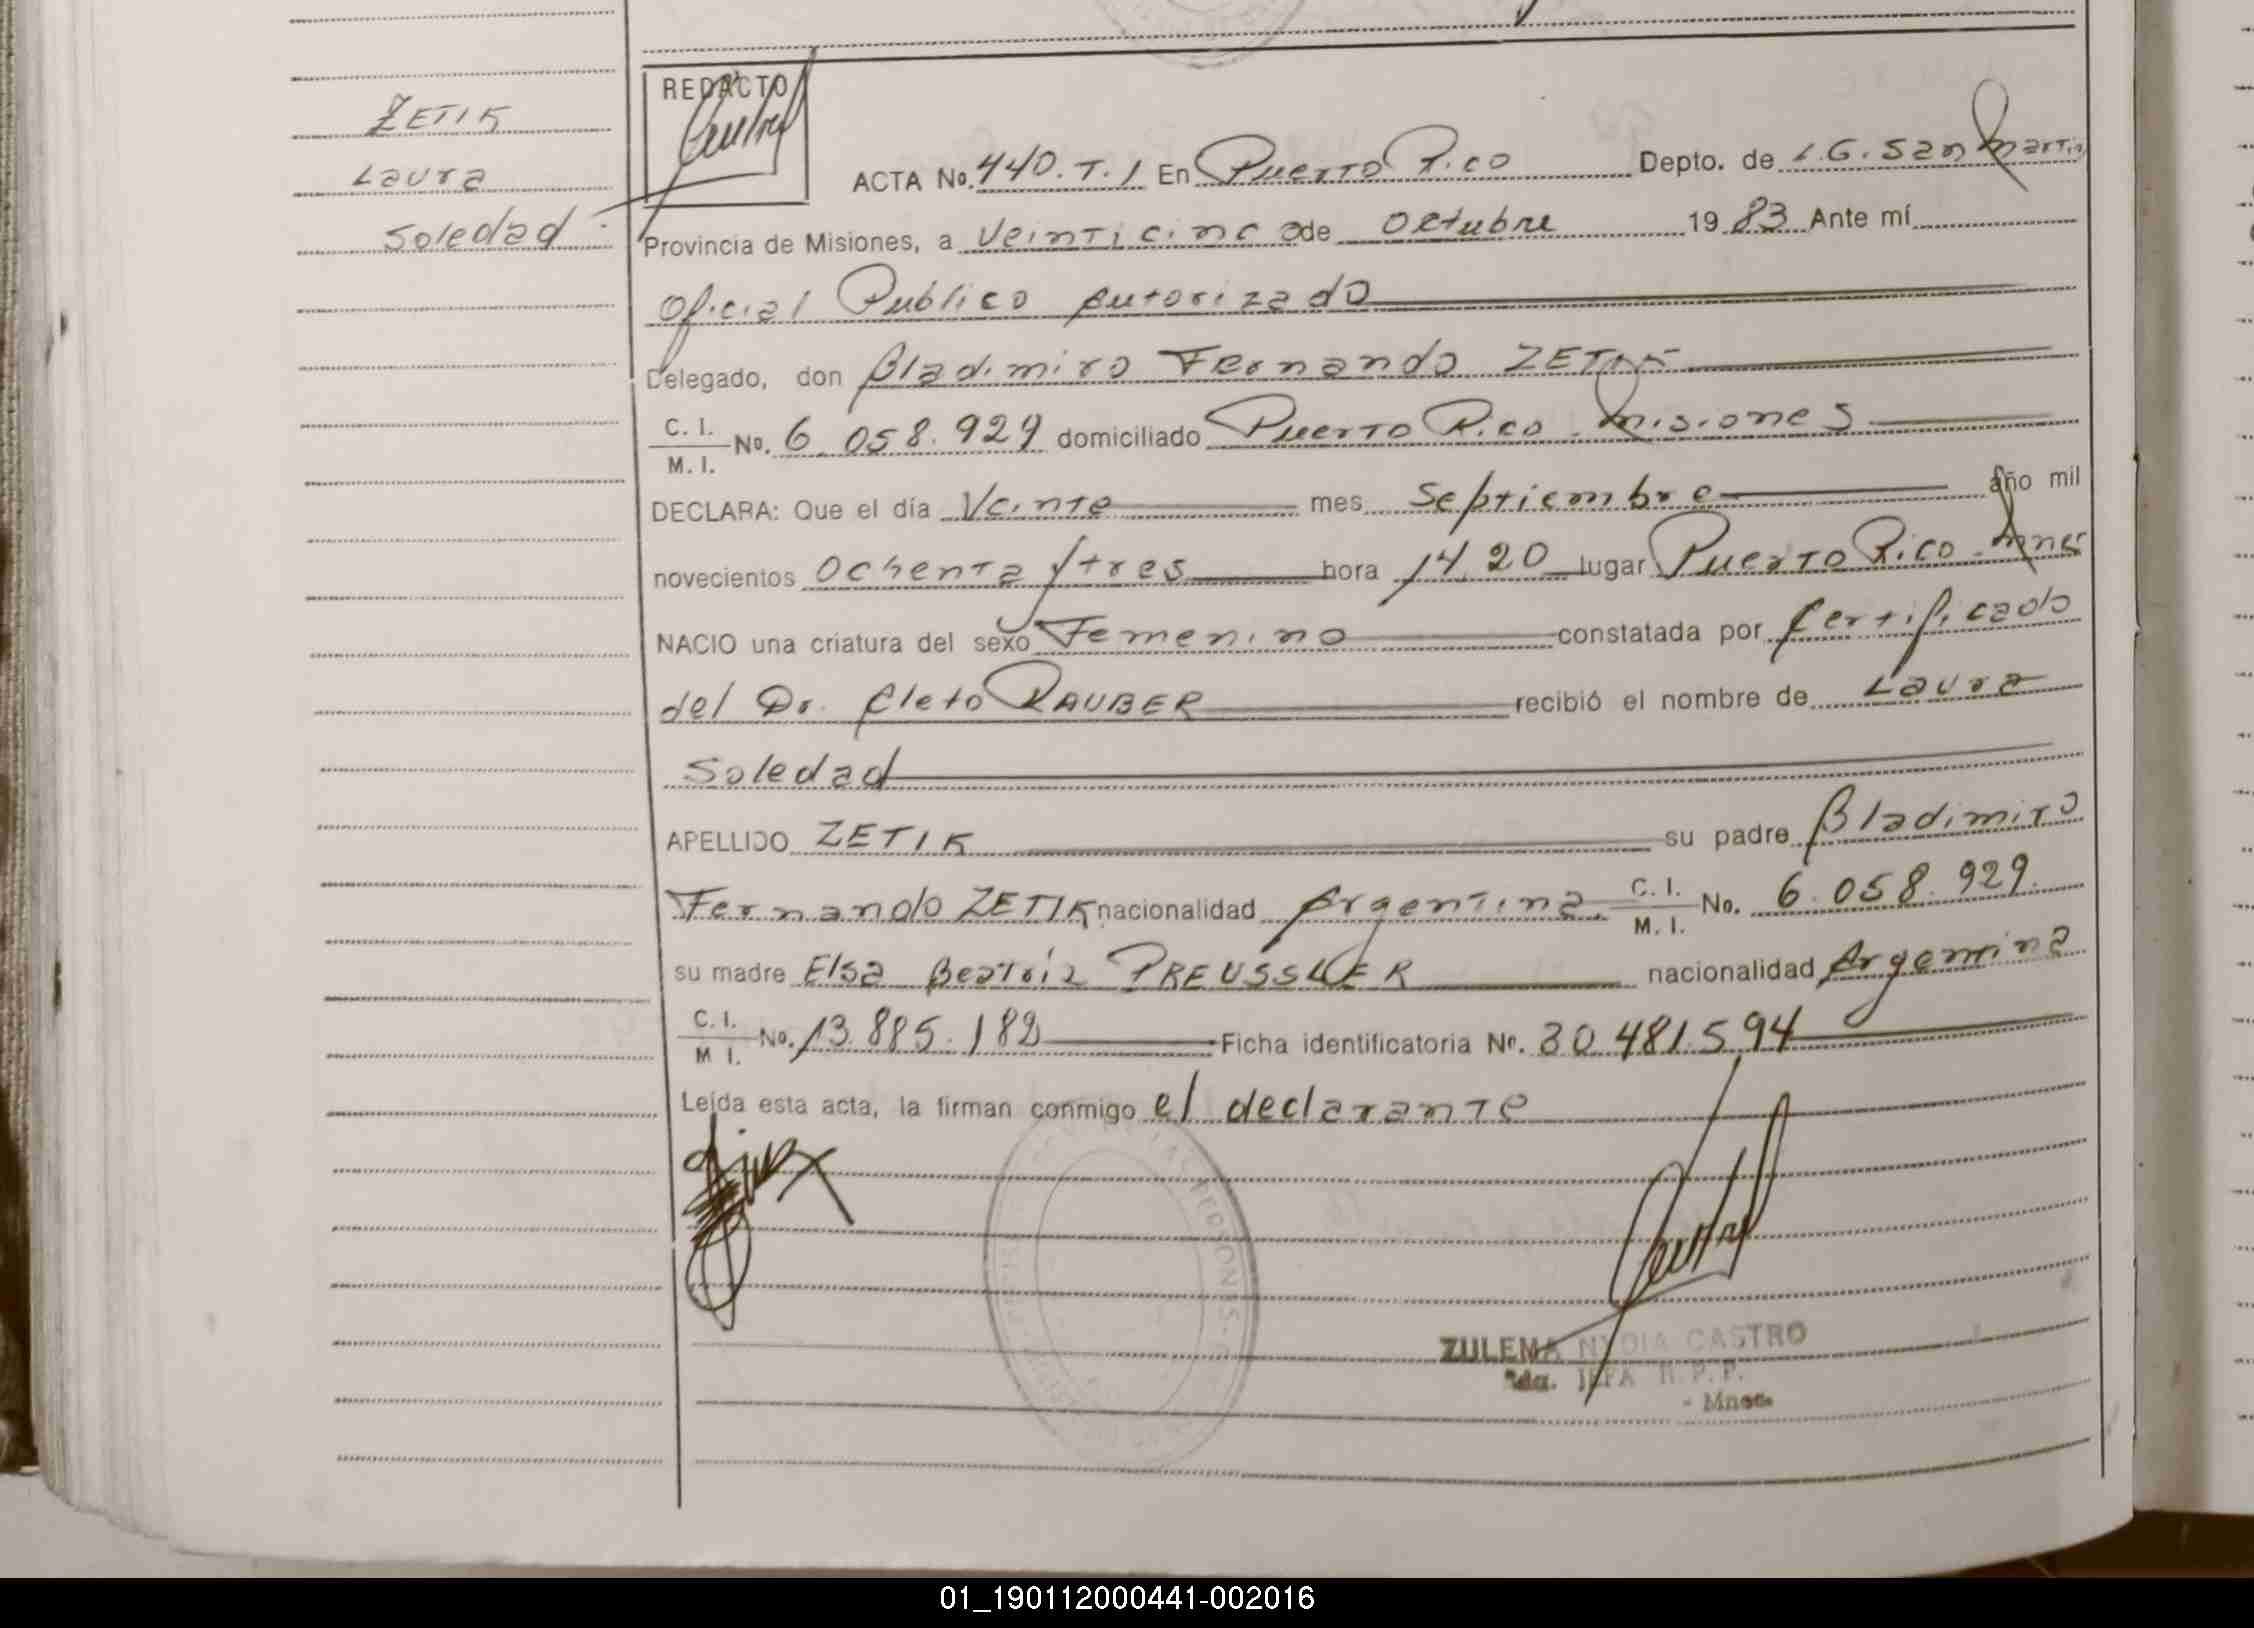 ZETIK
Laura
Soledad
REDACTO
ACTA No. 440. T. 1 En Puerto Rico Depto. de L.G. San Martin
Provincia de Misiones, a Veinticinco de Octubre 19 83 Ante mí
Oficial Publico Autorizado
Delegado, don Bladimiro Fernando ZETIK
C. I. / M. I. No. 6.058.929 domiciliado Puerto Rico - Misiones
DECLARA: Que el día Veinte mes Septiembre año mil
novecientos Ochenta y tres hora 14,20 lugar Puerto Rico - Mnes
NACIO una criatura del sexo Femenino constatada por Certificado
del Dr. Cleto RAUBER recibió el nombre de Laura
Soledad
APELLIDO ZETIK su padre Bladimiro
Fernando ZETIK nacionalidad Argentina C. I. / M. I. No. 6.058.929
su madre Elsa Beatriz PREUSSLER nacionalidad Argentina
C. I. / M I. No. 13.885.182 Ficha identificatoria No. 30.481.594
Leída esta acta, la firman conmigo el declarante
ZULEMA NYDIA CASTRO
- Mnes
01_190112000441-002016